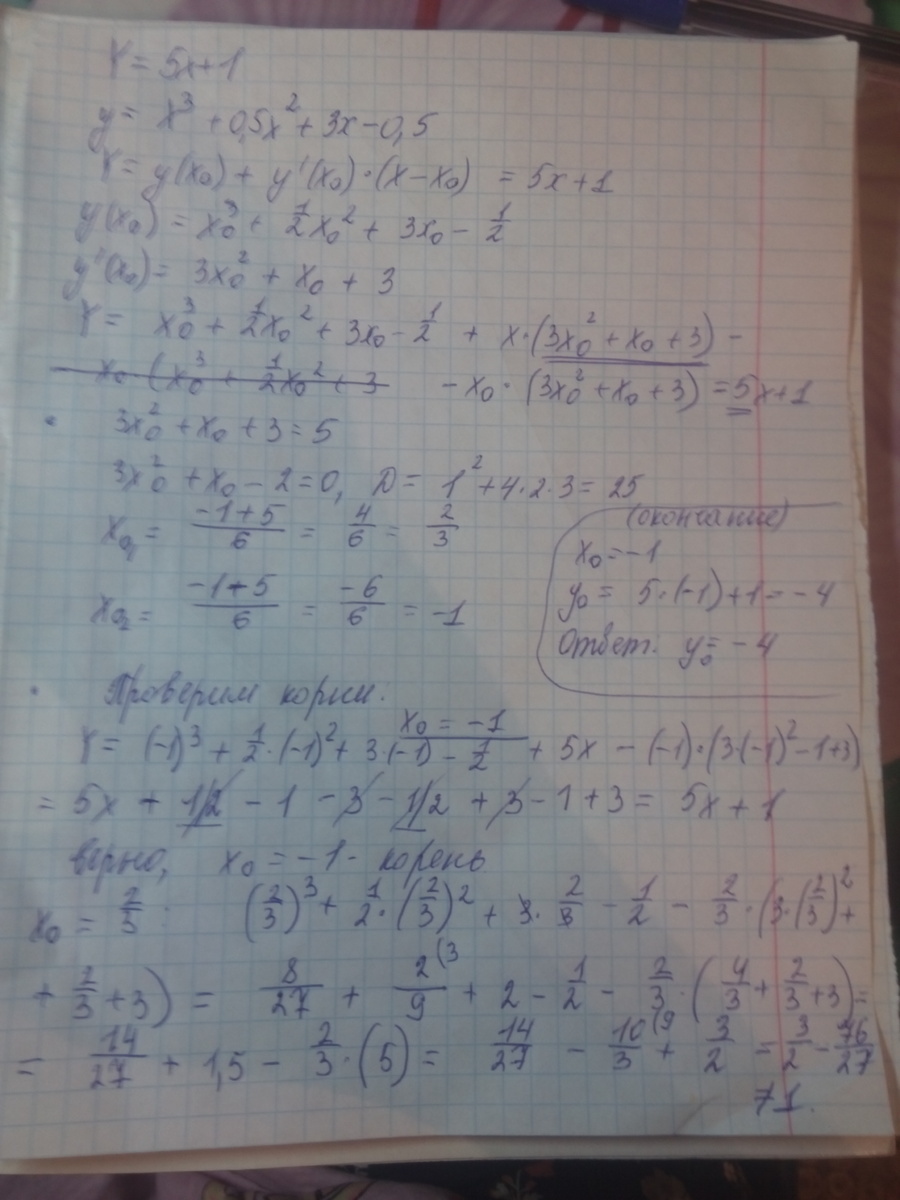 Y = 5x+1
y = x³ + 0,5x² + 3x - 0,5
Y = y(x₀) + y'(x₀)·(x-x₀) = 5x+1
y(x₀) = x₀³ + 1/2 x₀² + 3x₀ - 1/2
y'(x₀) = 3x₀² + x₀ + 3
Y = x₀³ + 1/2 x₀² + 3x₀ - 1/2 + x·(3x₀² + x₀ + 3) -
x₀·(x₀³ + 1/2 x₀² + 3 - x₀·(3x₀² + x₀ + 3) = 5x+1
3x₀² + x₀ + 3 = 5
3x₀² + x₀ - 2 = 0, D = 1² + 4·2·3 = 25
x₀₁ = (-1+5)/6 = 4/6 = 2/3
x₀₂ = (-1+5)/6 = -6/6 = -1
(окончание)
x₀ = -1
y₀ = 5·(-1)+1 = -4
Ответ: y₀ = -4
Проверим корни:
x₀ = -1
Y = (-1)³ + 1/2·(-1)² + 3·(-1) - 1/2 + 5x - (-1)·(3·(-1)² - 1+3)
= 5x + 1/2 - 1 - 3 - 1/2 + 3 - 1 + 3 = 5x + 1
верно, x₀ = -1 - корень
x₀ = 2/3 : (2/3)³ + 1/2·(2/3)² + 3·2/3 - 1/2 - 2/3·(3·(2/3)² +
+ 2/3 + 3) = 8/27 + 2/9 (3 + 2 - 1/2 - 2/3·(4/3 + 2/3 + 3) =
= 14/27 + 1,5 - 2/3·(5) = 14/27 - 10/3 (9 + 3/2 = 3/2 - 76/27
≠ 1.